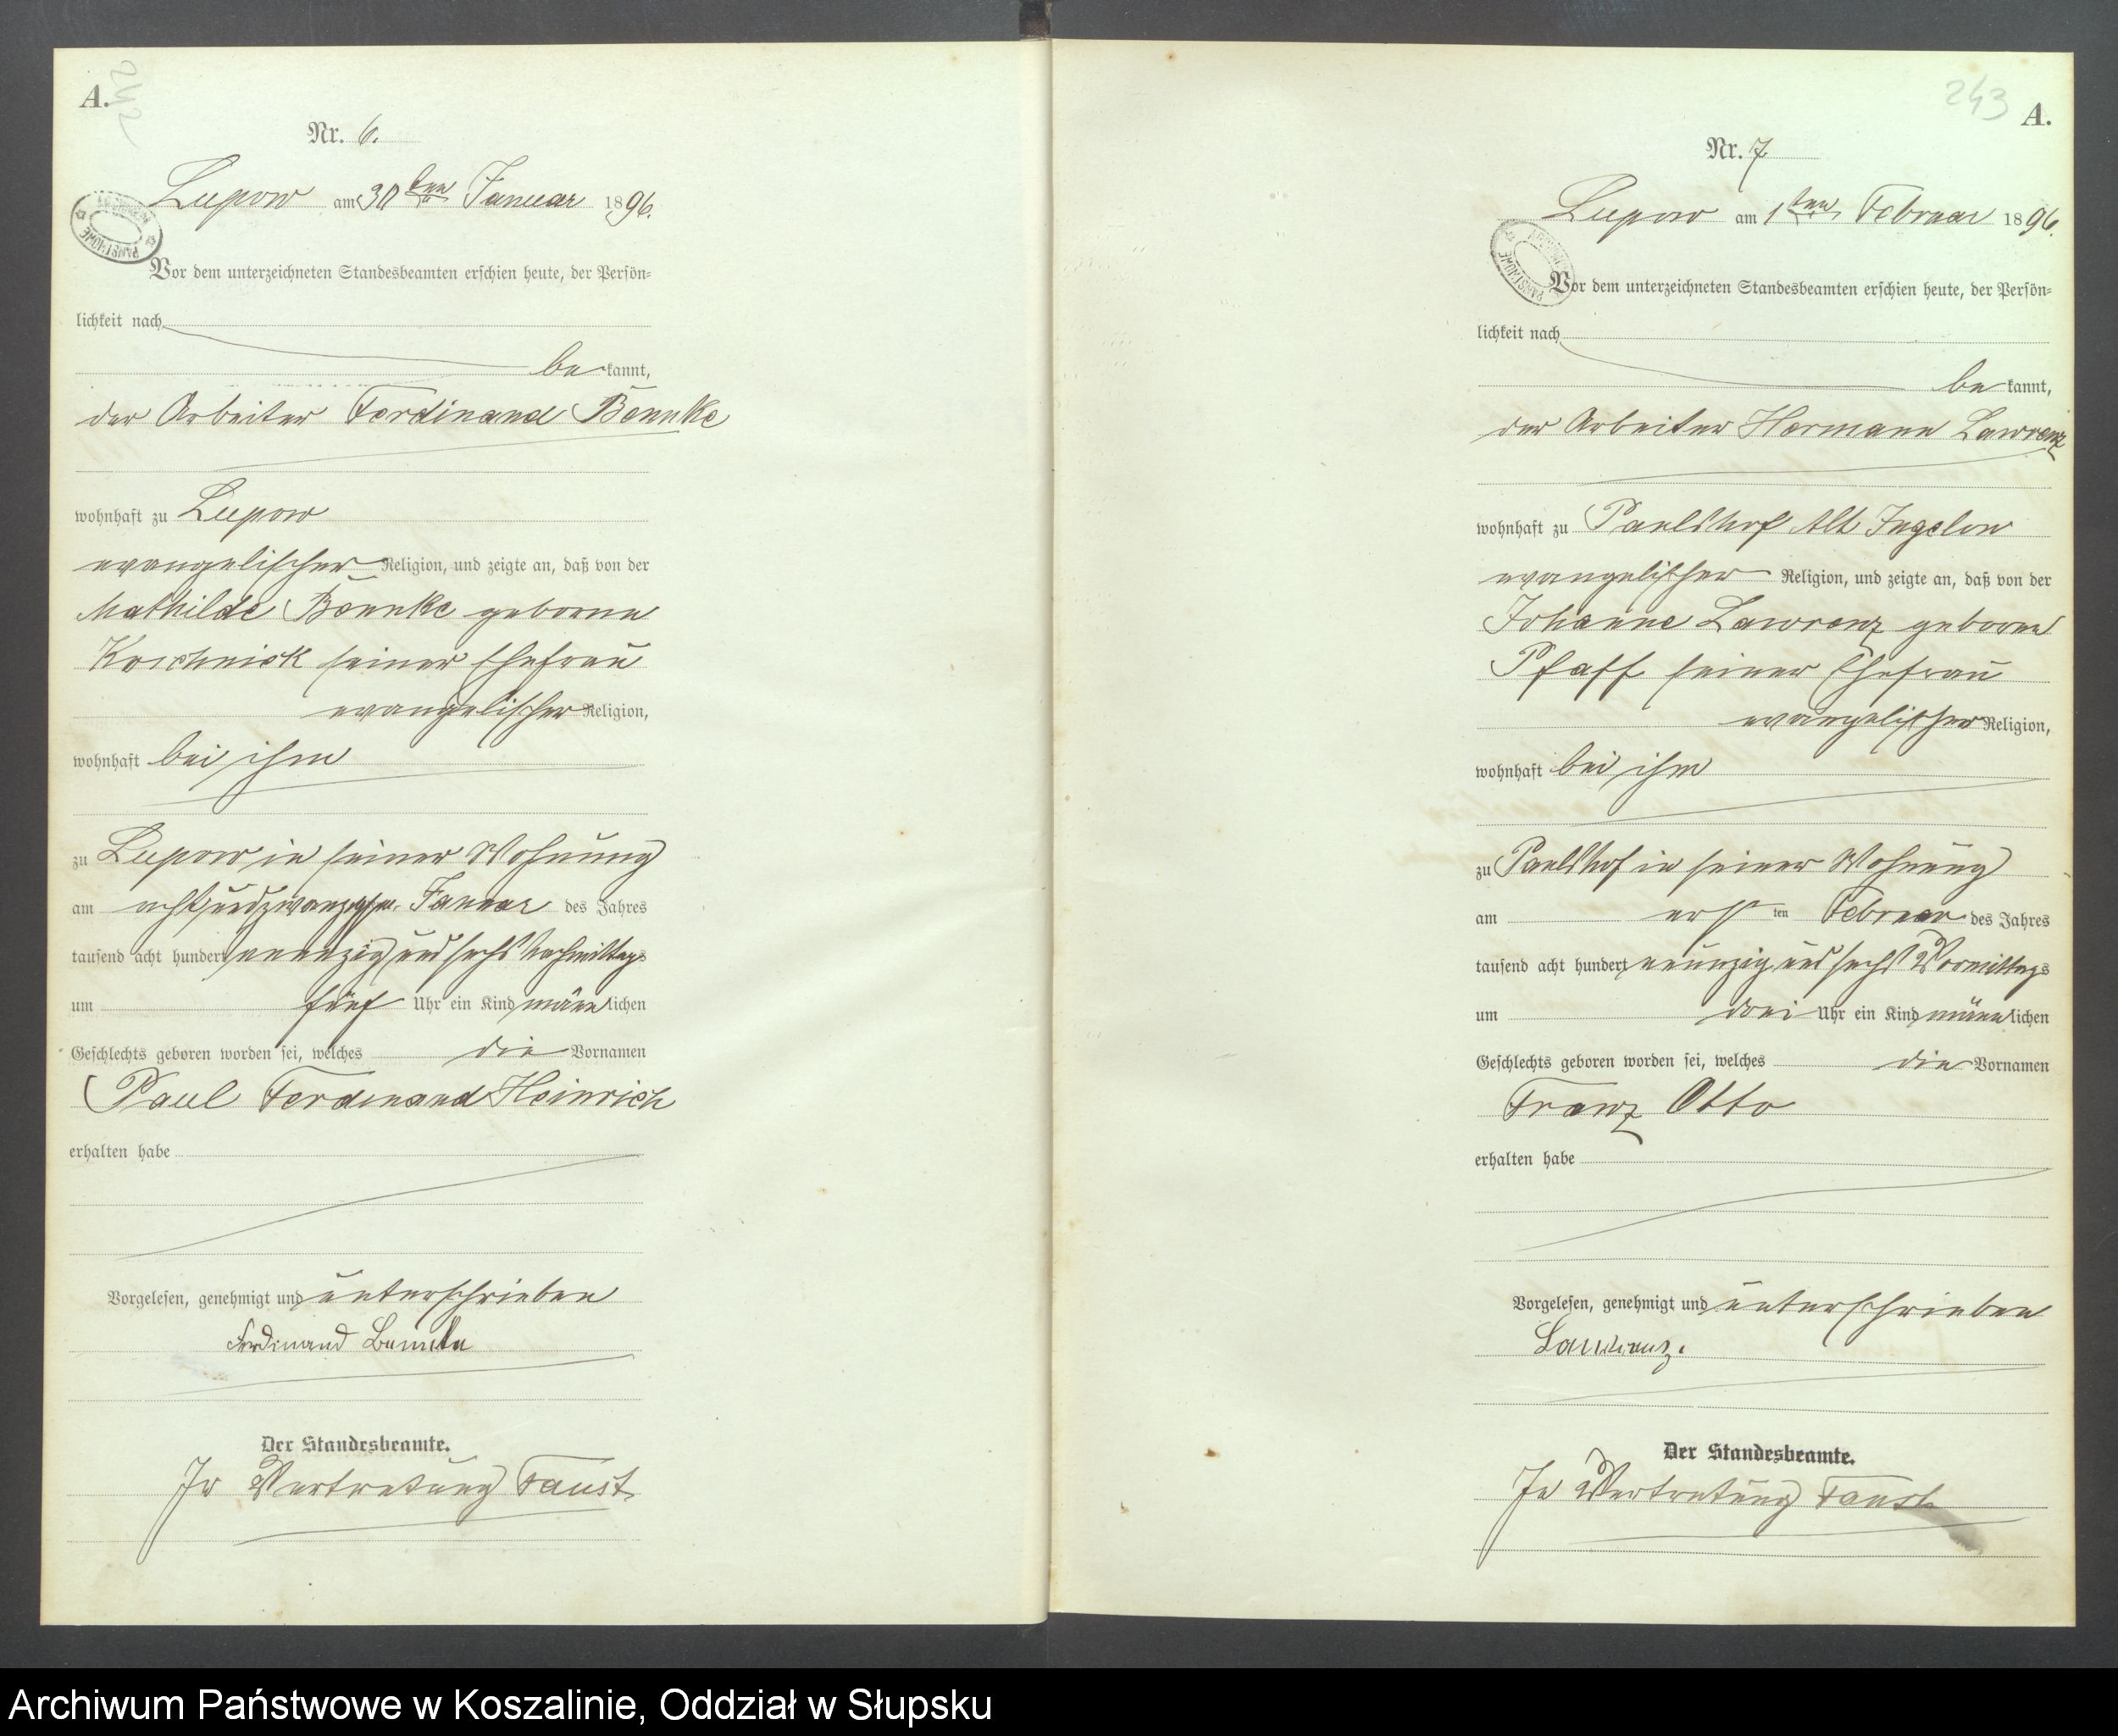 A.
242
Nr. 6.
Lupow am 30ten Januar 1896.
Vor dem unterzeichneten Standesbeamten erschien heute, der Persön=
lichkeit nach
be kannt,
der Arbeiter Ferdinand Bönnke
wohnhaft zu Lupow
evangelischer Religion, und zeigte an, daß von der
Mathilde Bönnke geborne
Koschnick seiner Ehefrau
evangelischer Religion,
wohnhaft bei ihm
zu Lupow in seiner Wohnung
am achtundzwanzigsten Januar des Jahres
tausend acht hundert neunzig und sechs Nachmittags
um fünf Uhr ein Kind männlichen
Geschlechts geboren worden sei, welches die Vornamen
Paul Ferdinand Heinrich
erhalten habe
Vorgelesen, genehmigt und unterschrieben
Ferdinand
Der Standesbeamte.
In Vertretung Faust.
243
A.
Nr. 7
Lupow am 1ten Februar 1896.
Vor dem unterzeichneten Standesbeamten erschien heute, der Persön=
lichkeit nach
be kannt,
der Arbeiter Hermann Lawrenz
wohnhaft zu Paulshof Alt Jugelow
evangelischer Religion, und zeigte an, daß von der
Johanne Lawrenz geborne
Pfaff seiner Ehefrau
evangelischer Religion,
wohnhaft bei ihm
zu Paulshof in seiner Wohnung
am ersten Februar des Jahres
tausend acht hundert neunzig und sechs Vormittags
um drei Uhr ein Kind männlichen
Geschlechts geboren worden sei, welches die Vornamen
Franz Otto
erhalten habe
Vorgelesen, genehmigt und unterschrieben
Lawrenz.
Der Standesbeamte.
In Vertretung Faust
Archiwum Państwowe w Koszalinie, Oddział w Słupsku